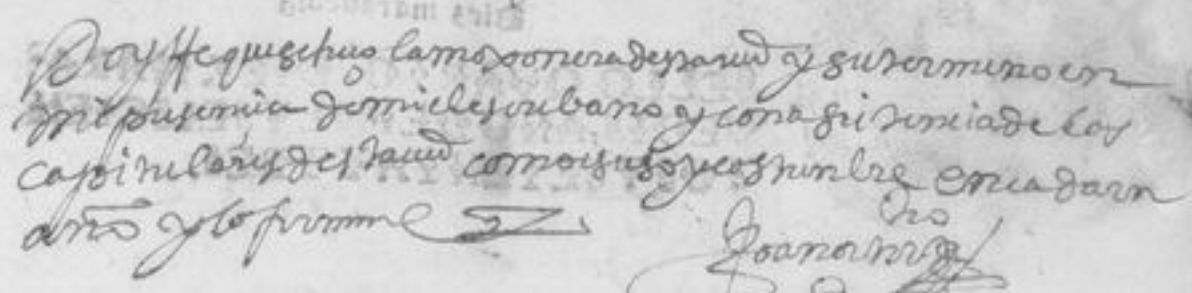 Doy ffe que se hizo la moxonera desta ciud y su termino en
mi presencia y con asistencia de los
capitulares desta ciud como es uso y costunbre en cada un
año y lo firme